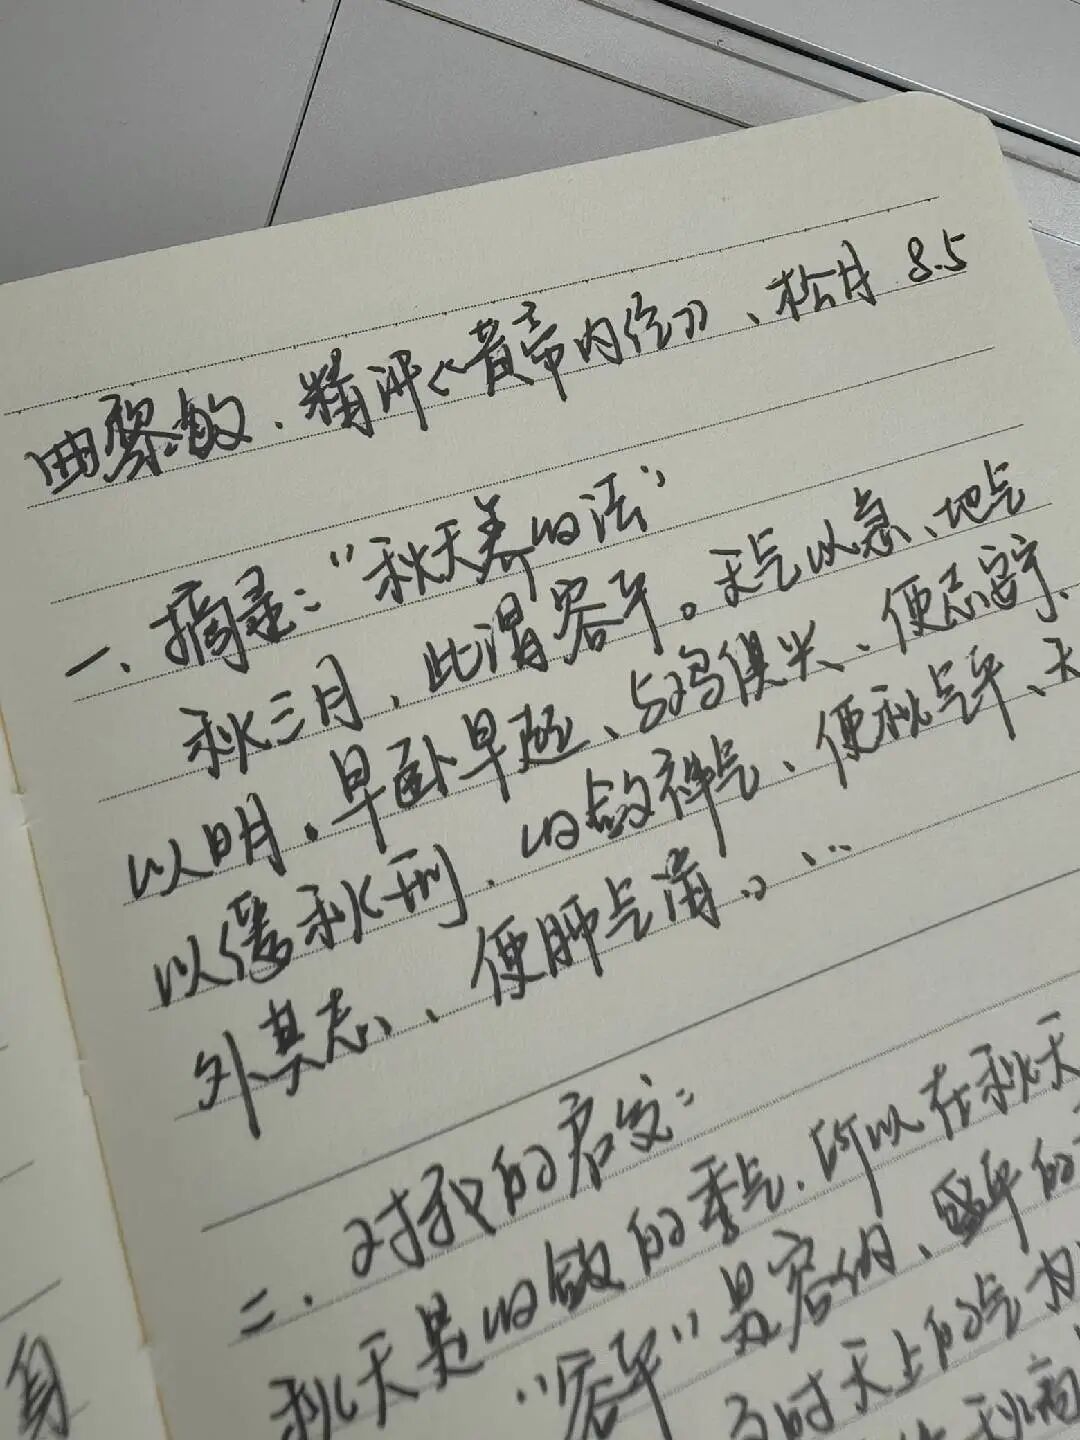 曲黎敏.精讲《黄帝内经》、松月 8.5
一、摘录:“秋天养收法”
秋三月,此谓容平。天气以急、地气
以明。早卧早起、与鸡俱兴、使志安宁、
以缓秋刑.收敛神气、使秋气平、无
外其志、、使肺气清。…
二.对我的启发:
秋天是收敛的季气.所以在秋天
“容平”是容纳、
天上的气
身